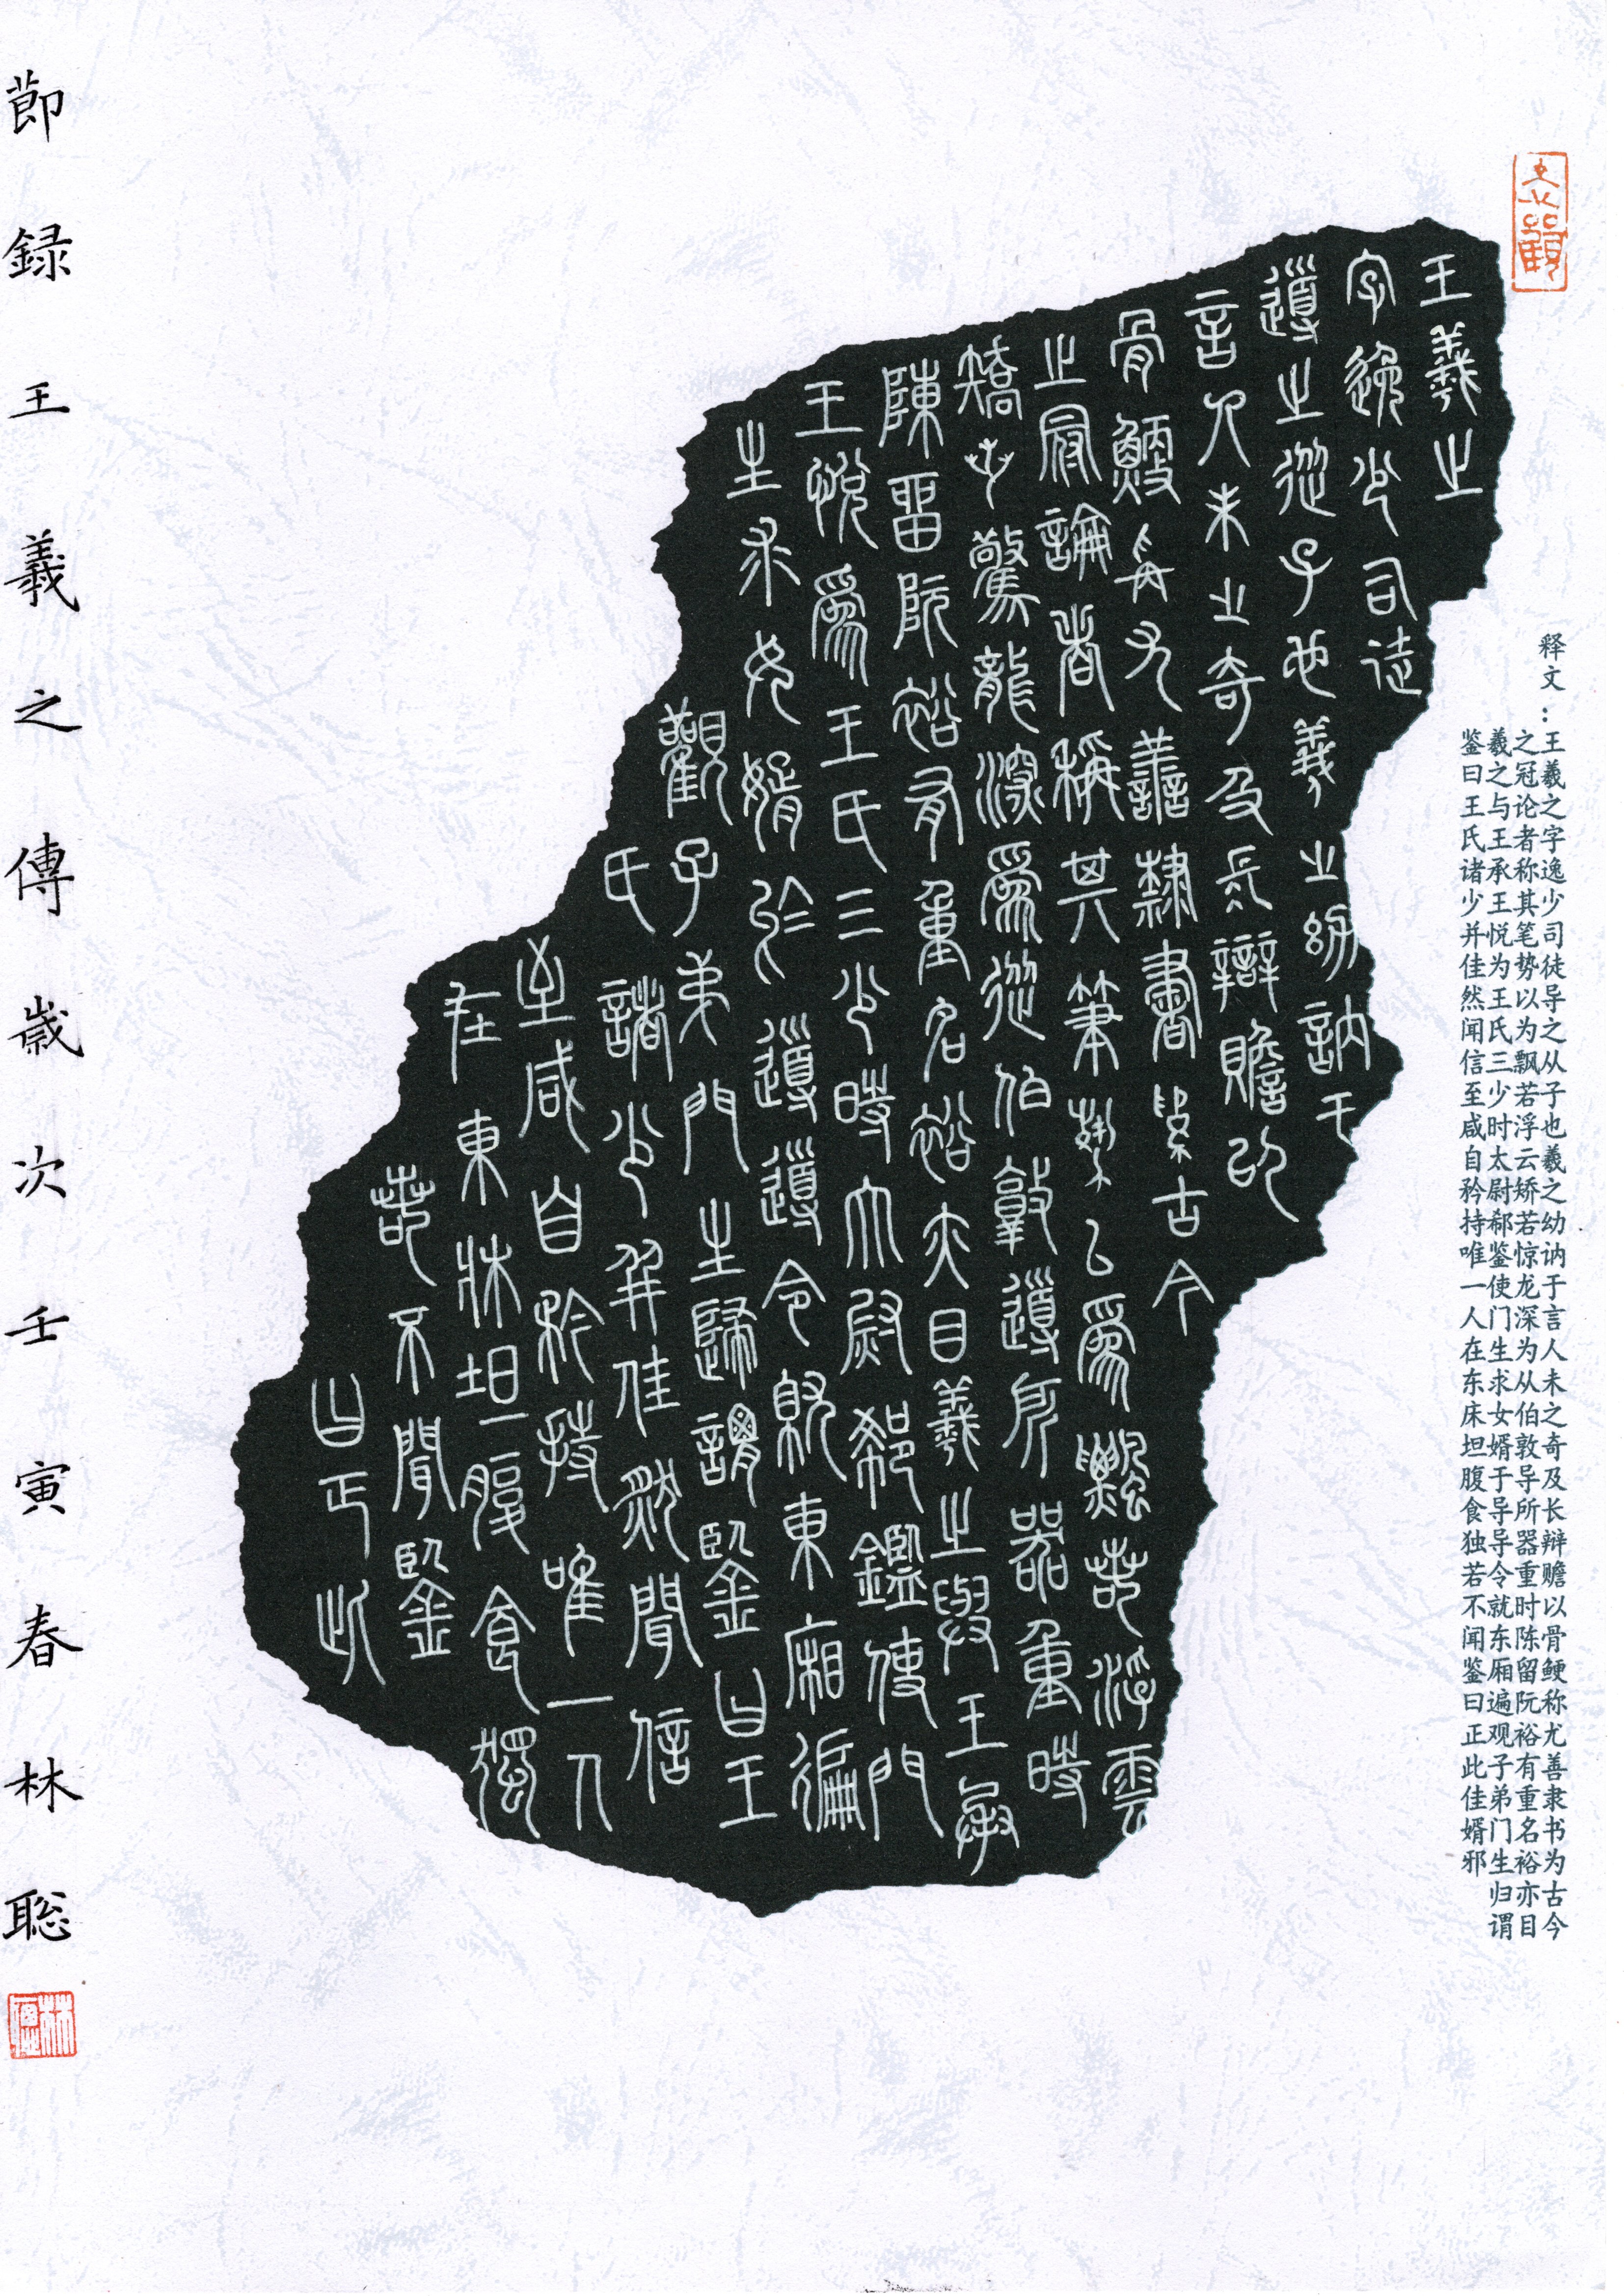 释文：王羲之字逸少司徒导之从子也羲之幼讷于言人未之奇及长辩赡以骨鲠称尤善隶书为古今
之冠论者称其笔势以为飘若浮云矫若惊龙深为从伯敦导所器重时陈留阮裕有重名裕亦目
羲之与王承王悦为王氏三少时太尉郗鉴使门生求女婿于导导令就东厢遍观子弟门生归谓
鉴曰王氏诸少并佳然闻信至咸自矜持唯一人在东床坦腹食独若不闻鉴曰正此佳婿邪
王羲之
字逸少司徒
導之從子也羲之幼訥于
言人未之奇及長辯贍以
骨鯁稱尤善隸書爲古今
之冠論者稱其筆勢以爲飄若浮雲
矯若驚龍深爲從伯敦導所器重時
陳留阮裕有重名裕亦目羲之與王承
王悅爲王氏三少時太尉郗鑑使門
生求女婿於導導令就東廂徧
觀子弟門生歸謂鑒曰王
氏諸少并佳然聞信
至咸自矜持唯一人
在東牀坦腹食獨
若不聞鑒
曰正此
節録王羲之傳歲次壬寅春林聡